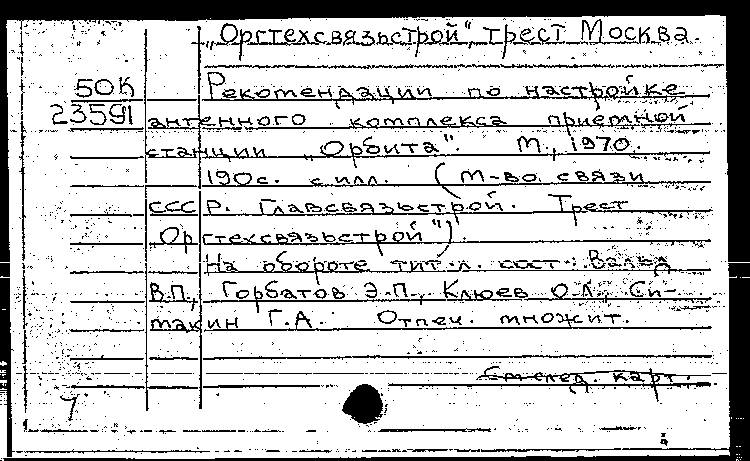 „Оргтехсвязьстрой", трест Москва.
50К Рекомендации по настройке
23591 антенного комплекса приёмной
станции „Орбита". М., 1970.
190с. с илл. (М-во связи
СССР. Главсвязьстрой. Трест
„Оргтехсвязьстрой").
На обороте тит. л. сост.: Вальд
В.П., Горбатов Э.П., Клюев О.Л., Си-
макин Г.А. Отпеч. множит.
См. след. карт.